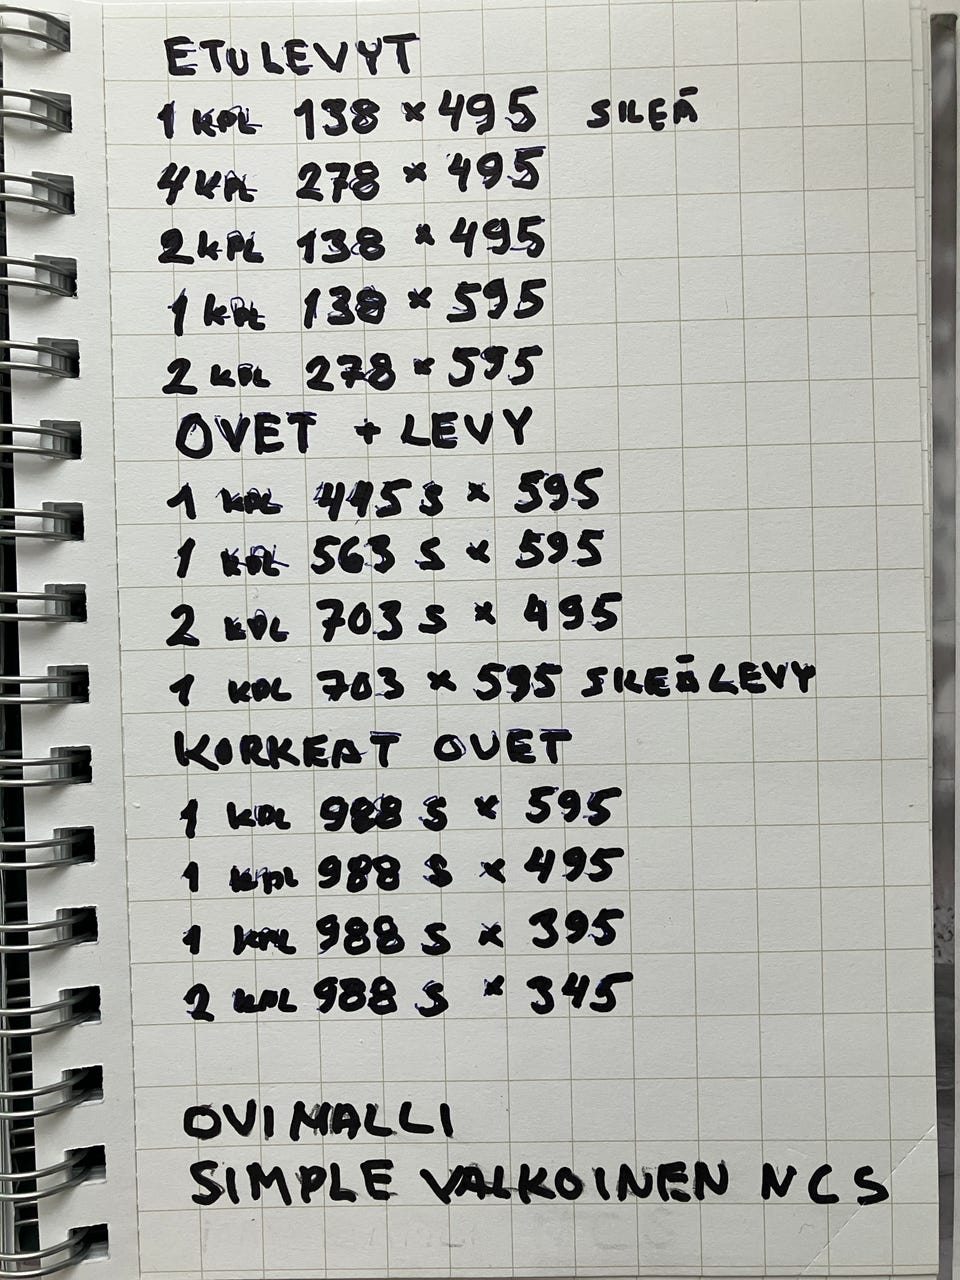 ETULEVYT
1 KPL 138 x 495 SILEÄ
4 KPL 278 x 495
2 KPL 138 x 495
1 KPL 138 x 595
2 KPL 278 x 595
OVET + LEVY
1 KPL 445 S x 595
1 KPL 563 S x 595
2 KPL 703 S x 495
1 KPL 703 x 595 SILEÄ LEVY
KORKEAT OVET
1 KPL 988 S x 595
1 KPL 988 S x 495
1 KPL 988 S x 395
2 KPL 988 S x 345
OVIMALLI
SIMPLE VALKOINEN NCS